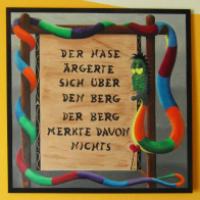 DER HASE
ÄRGERTE
SICH ÜBER
DEN BERG
DER BERG
MERKTE DAVON
NICHTS